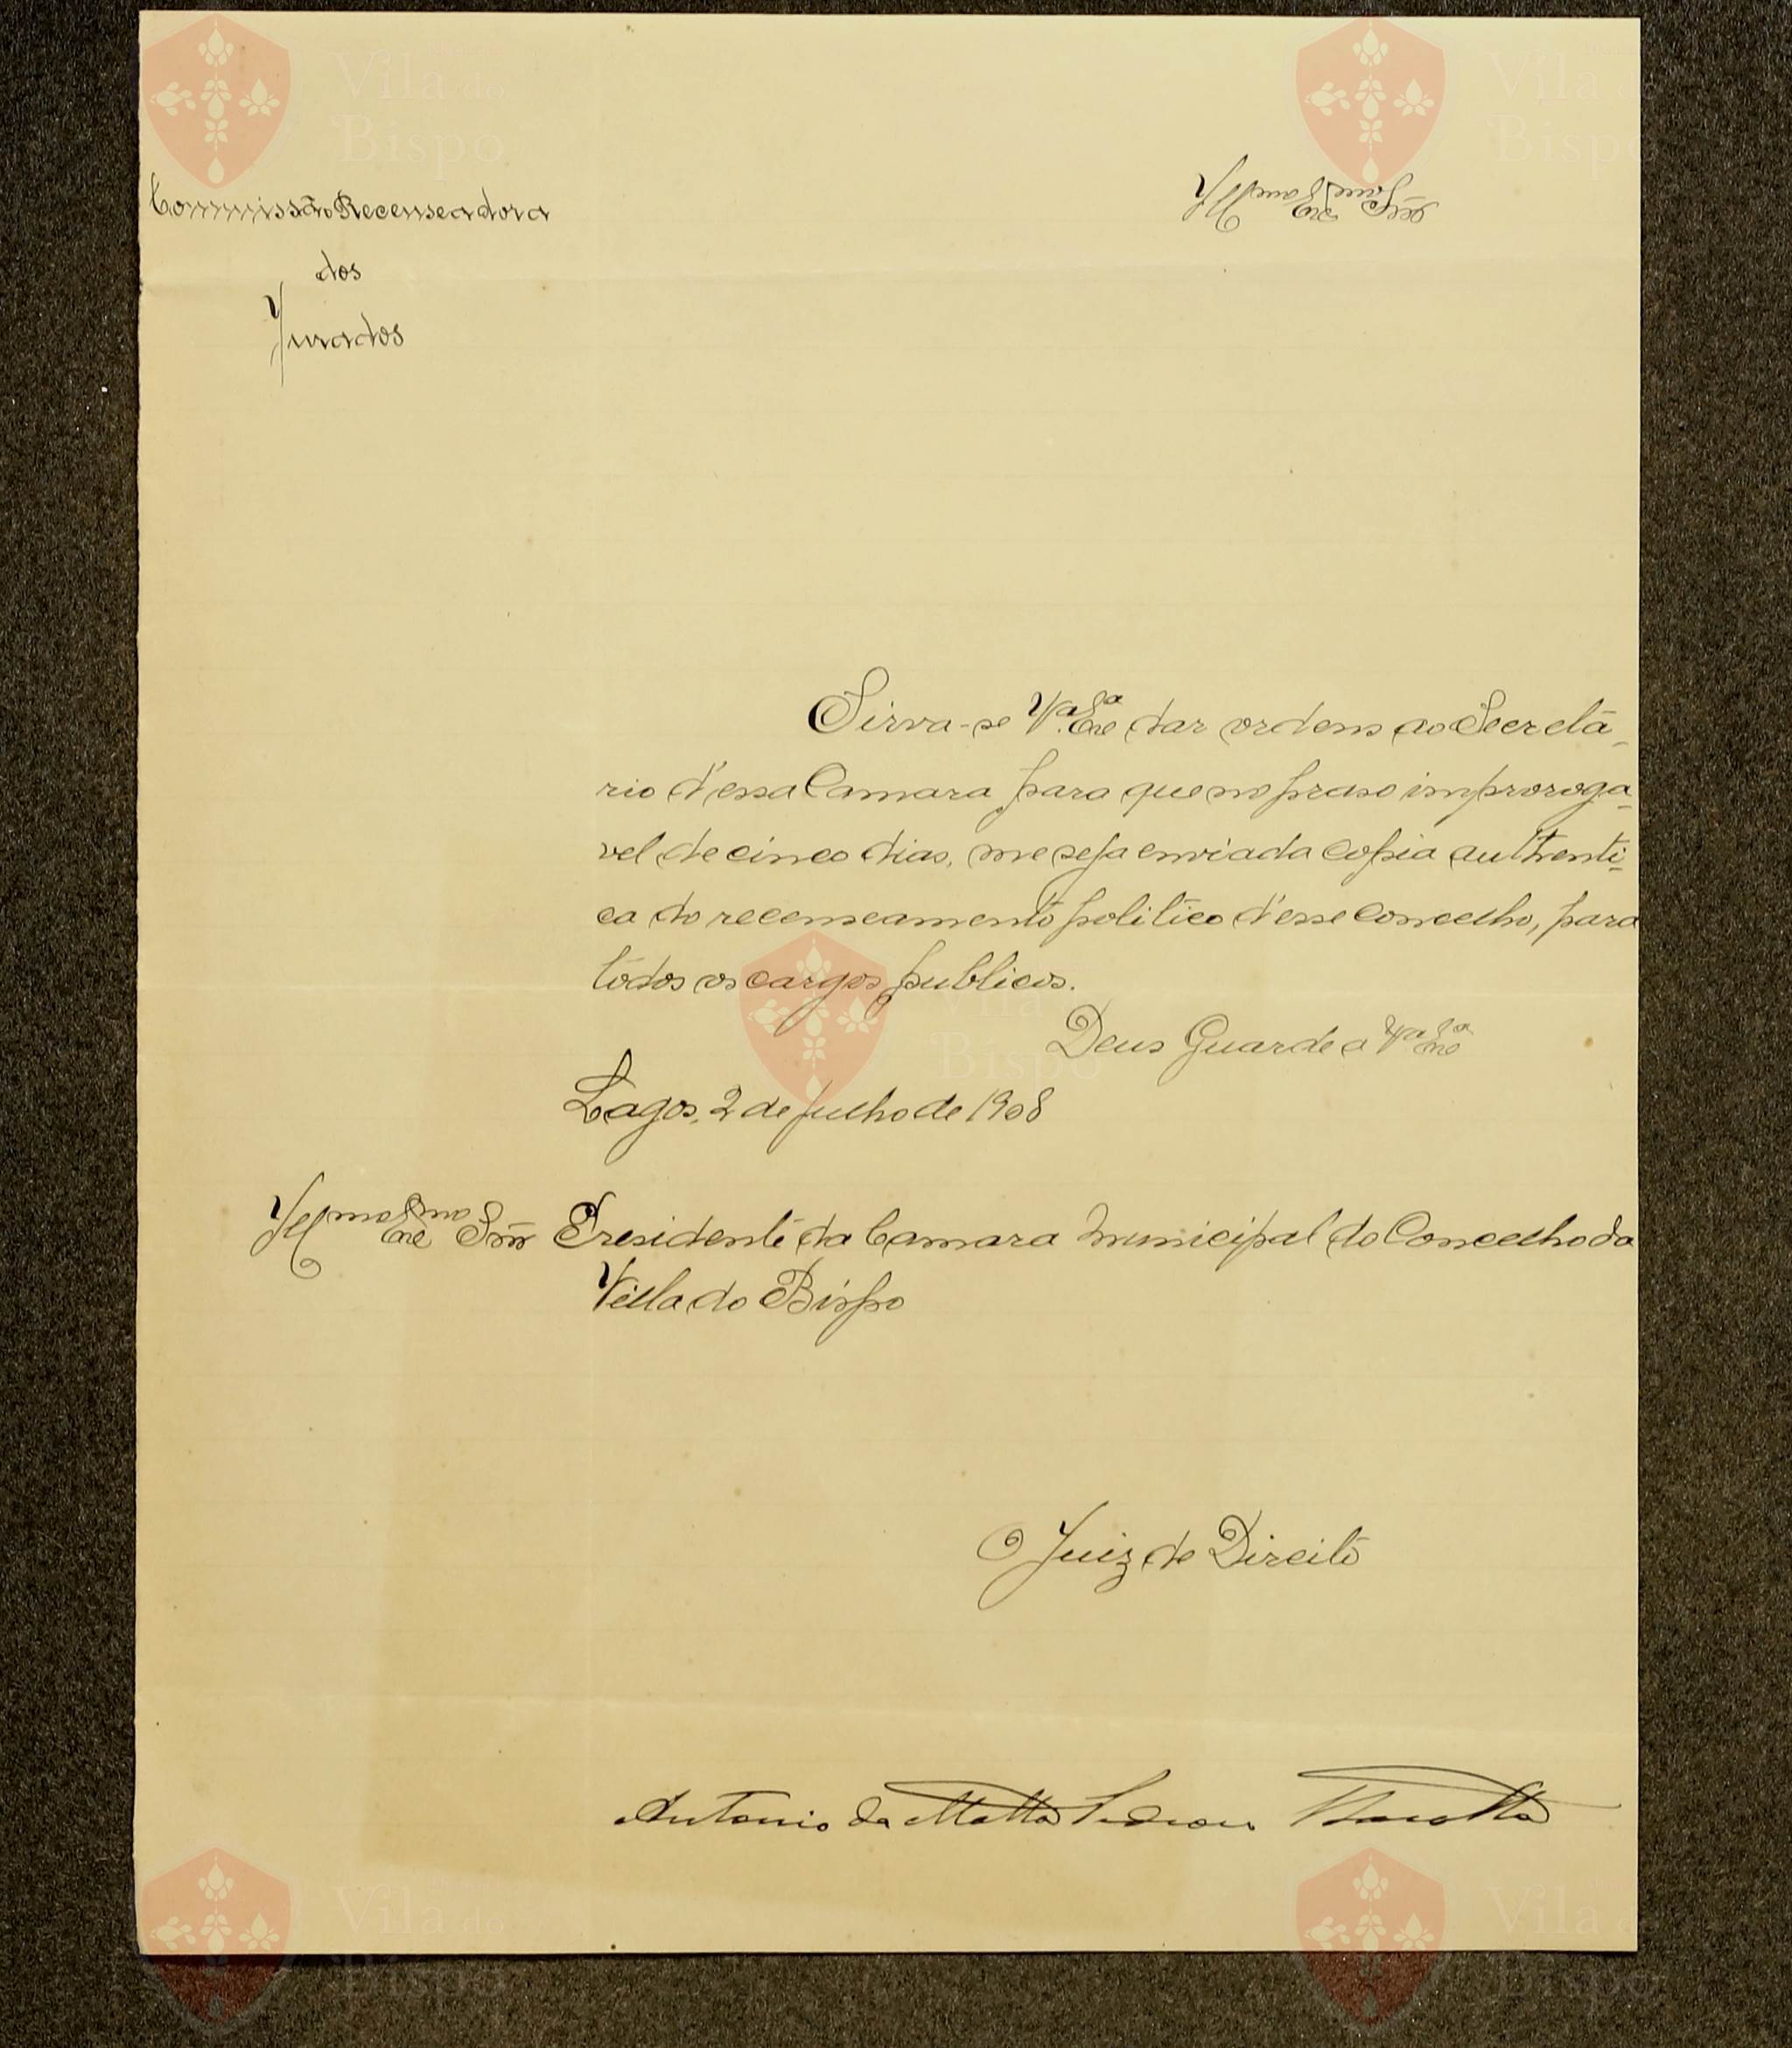 Vila do
Bispo
Vila do
Bispo
Commissão Recenseadora
dos
Jurados
Illmo Exmo Snr
Sirva-se V.ª Ex.ª dar ordens ao Secretá-
rio d'essa Camara para que no praso improroga-
vel de cinco dias, me seja enviada copia authenti-
ca do recenseamento politico d'esse concelho, para
todos os cargos publicos.
Vila do
Bispo
Deus Guarde a V.ª Ex.ª
Lagos, 2 de julho de 1908
Illmo Exmo Snr Presidente da Camara Municipal do Concelho da
Villa do Bispo
O Juiz de Direito
Antonio da Matta
Vila do
Bispo
Vila do
Bispo